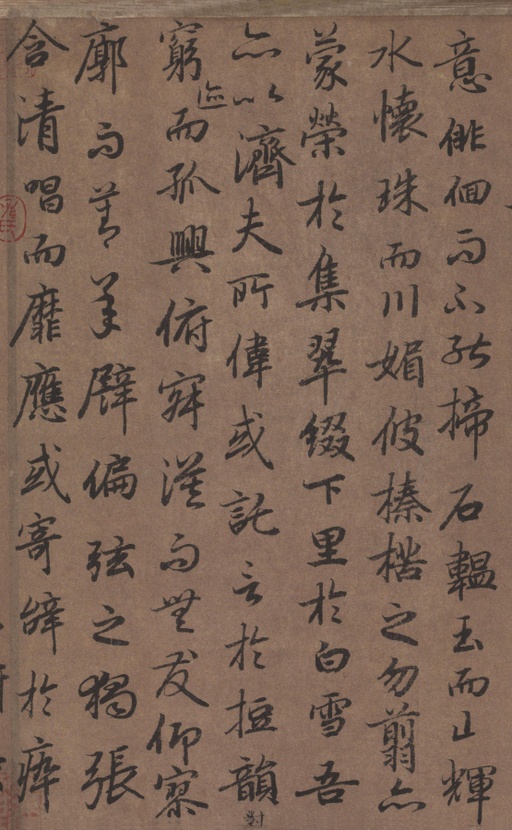 意俳佪而不能揥石韞玉而山輝
水懷珠而川媚彼榛楛之勿翦亦
蒙榮於集翠綴下里於白雪吾
亦以濟夫所偉或託言於短韻對
窮迹而孤興俯寂漠而無友仰寥
廓而莫承譬偏弦之獨張
含清唱而靡應或寄辭於瘁